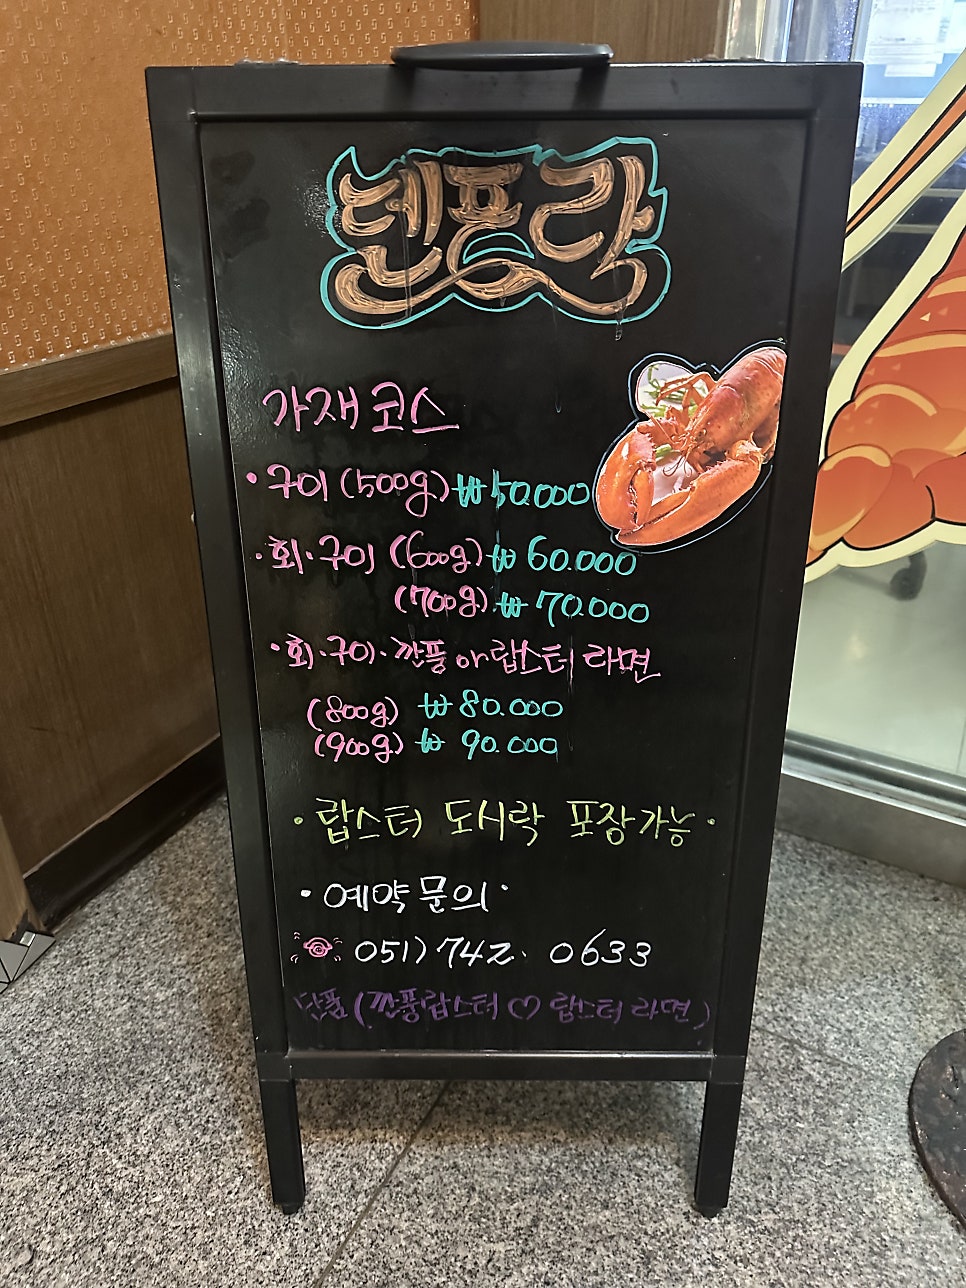 텐프라
가재 코스
· 구이 (500g) ₩50.000
· 회·구이 (600g) ₩60.000
(700g) ₩70.000
· 회·구이·깐풍 or 랍스터 라면
(800g) ₩80.000
(900g) ₩90.000
· 랍스터 도시락 포장가능 ·
· 예약문의 ·
☎ 051) 742. 0633
단품 (깐풍랍스터 ♡ 랍스터 라면)